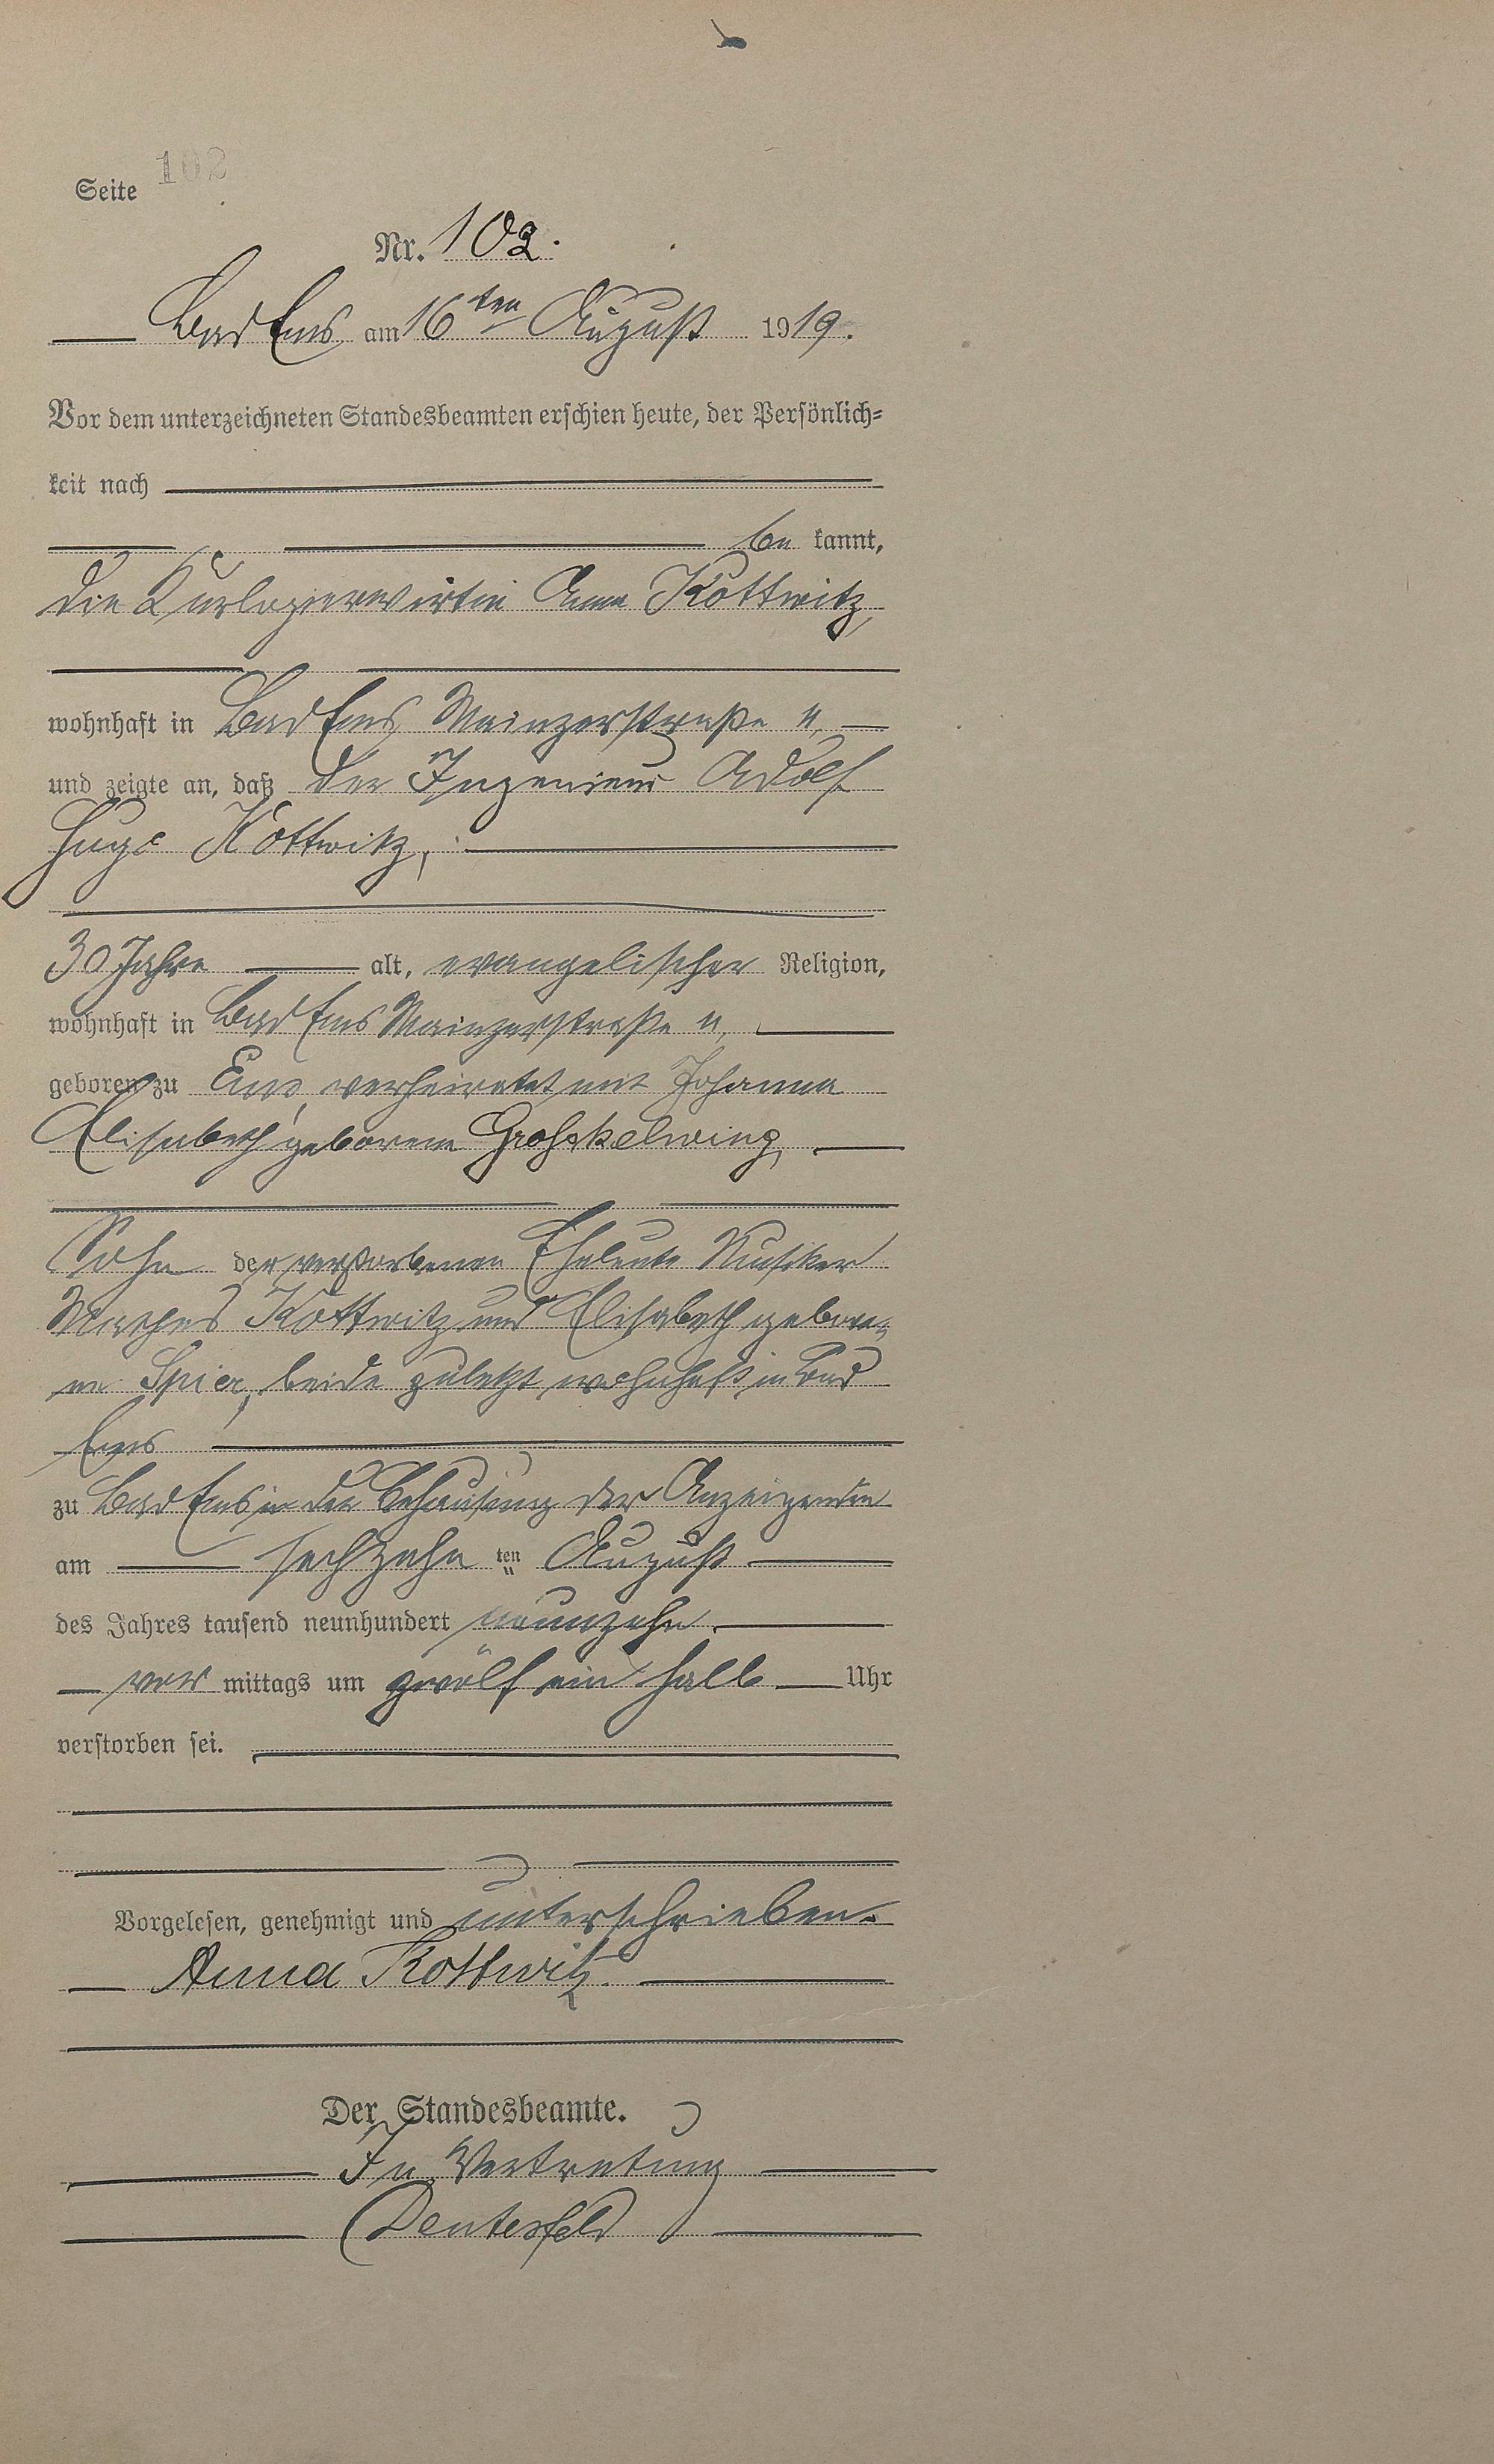 Seite 102
Nr. 102.
Bad Ems am 16ten August 1919.
Vor dem unterzeichneten Standesbeamten erschien heute, der Persönlich=
keit nach
be kannt,
die Kurlogierwirtin Anna Kottwitz,
wohnhaft in Bad Ems, Mainzerstraße 11,
und zeigte an, daß der Ingenieur Adolf
Hugo Kottwitz,
30 Jahre alt, evangelischer Religion,
wohnhaft in Bad Ems Mainzerstraße 11,
geboren zu Ems, verheiratet mit Johanna
Elisabeth geborene Großkelwing,
Sohn der verstorbenen Eheleute Musiker
Kottwitz und Elisabeth gebore=
ne Spier, beide zuletzt wohnhaft in Bad
Ems
zu Bad Ems in der Behausung der Anzeigenden
am sechzehn ten August
des Jahres tausend neunhundert neunzehn
vor mittags um zwölf ein halb Uhr
verstorben sei.
Vorgelesen, genehmigt und unterschrieben.
Anna Kottwitz.
Der Standesbeamte.
In Vertretung